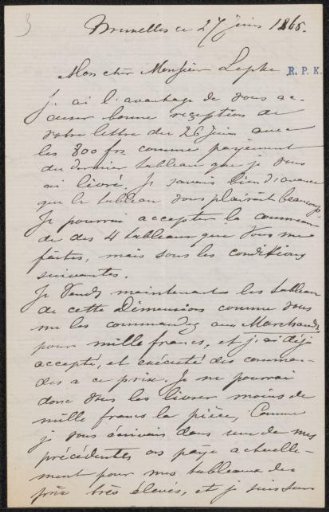 3
Bruxelles ce 27 juin 1866.
Mon cher Monsieur
R.P.K.
J'ai l'avantage de vous ac-
cuser bonne réception de
votre lettre du 26 juin avec
les 800 frs comme payement
du dernier tableau que je vous
ai livré. Je savais bien d'avance
que le tableau vous plairait beaucoup
Je pourrai accepter la comman-
de des 4 tableaux que vous me
faites, mais sous les conditions
suivantes.
Je vends maintenant les tableaux
de cette Dimension comme vous
me les commandez aux Marchands
pour mille francs, et j'ai déjà
accepté, et exécuté des comman-
des a ce prix. Je ne pourrai
donc vous les livrer moins de
mille francs la pièce, Comme
je vous écrivais dans une de mes
précédentes on paye actuelle-
ment pour mes tableaux des
prix très élevés, et je suis